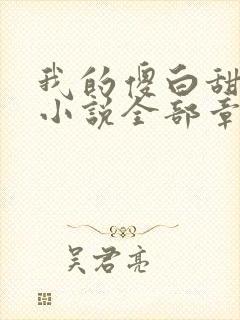 我的傻白甜
小说全部章
吴君亮